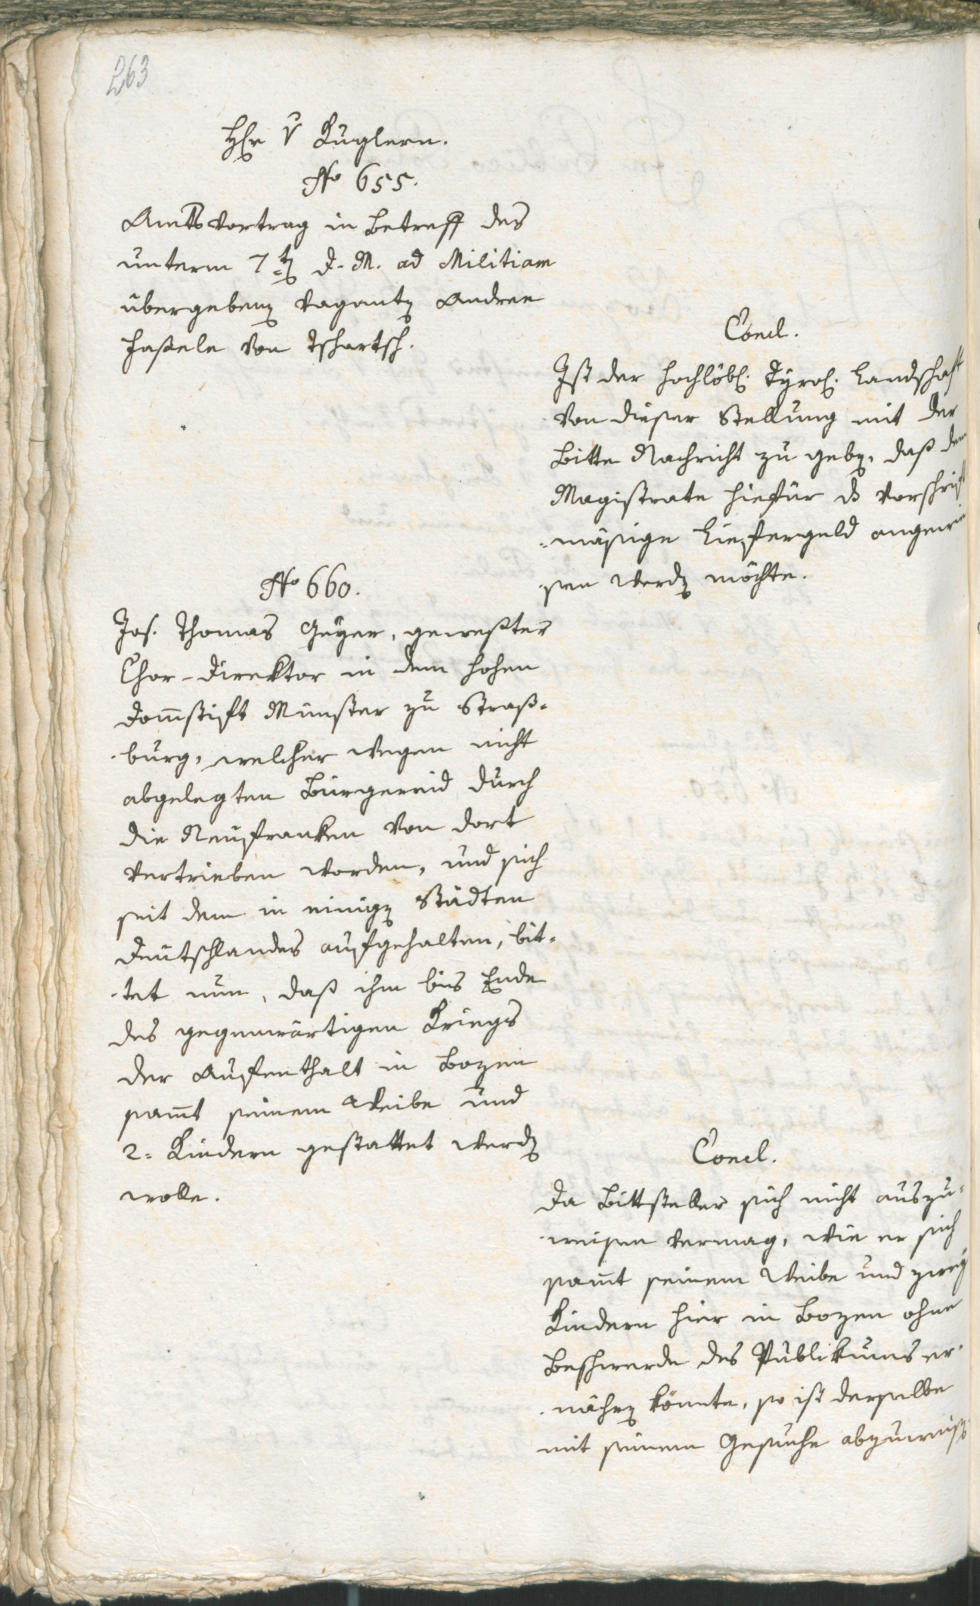 263
Hr v Kuglern.
No 655.
Amtsvortrag in Betreff des
unterm 7ten d. M. ad Militiam
übergebenen Vaganten Andree
Haßele von Tschartsch.
Concl.
Ist der hochlöbl. Tyrol. Landschaft
von dieser Stellung mit der
Bitte Nachricht zu geben, daß dem
Magistrate hiefür das vorschrift
-mäßige Liefergeld angewie
sen werden möchte.
No 660.
Jos. Thomas Geyer, gewester
Chor-Direktor in dem hohen
Domstift Münster zu Straß-
-burg, welcher wegen nicht
abgelegten Bürgereid durch
die Neufranken von dort
vertrieben worden, und sich
seit dem in einigen Städten
Deutschlandes aufgehalten, bit-
-tet nun, daß ihm bis Ende
des gegenwärtigen Kriegs
der Aufenthalt in Bozen
samt seinem Weibe und
2. Kindern gestattet werden
wolle.
Concl.
Da Bittsteller sich nicht auszu-
-weisen vermag, wie er sich
samt seinem Weibe und zwey
Kindern hier in Bozen ohne
Beschwerde des Publikums er-
-nähren könnte, so ist derselbe
mit seinem Gesuche abzuweisen